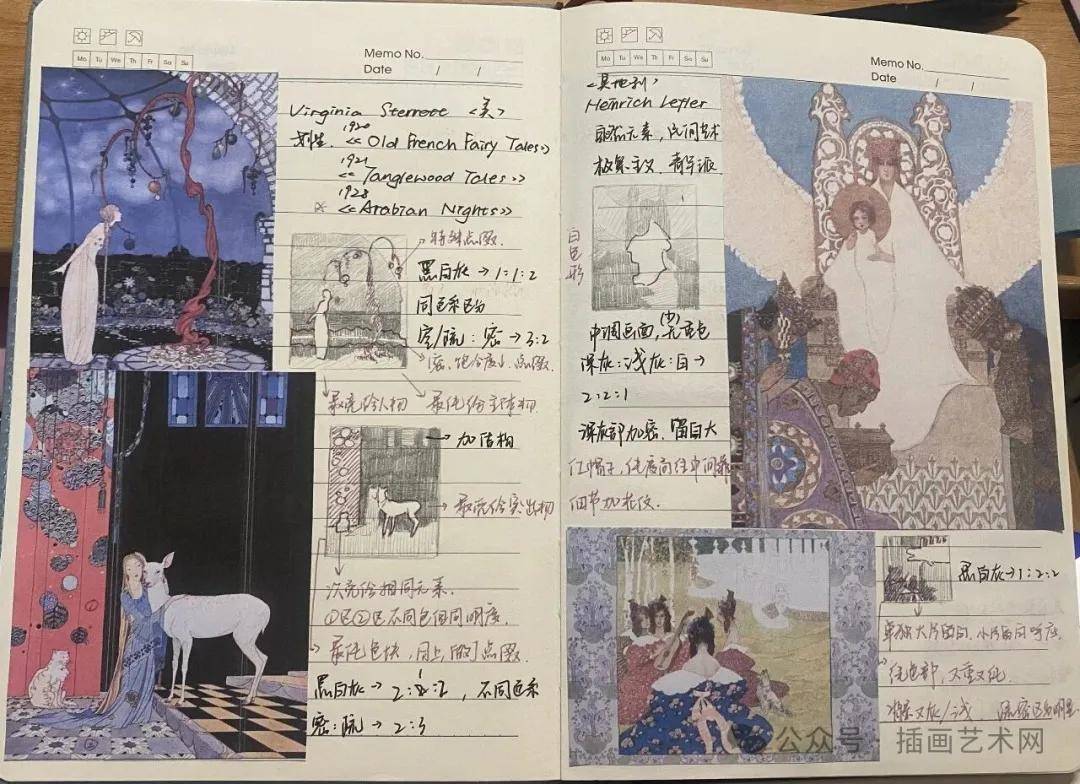 Memo No.
Mo Tu We Th Fr Sa Su
Date / /
Virginia Sterrett <美>
1920
<< Old French Fairy Tales>>
1921
<< Tanglewood Tales >>
1928
<< Arabian Nights>>
特殊点缀.
黑白灰 → 1:1:2
同色系区分
密 → 3:2
点缀.
最亮给人物
最纯给主体物
加结构
最亮给突出物
次亮给相同元素.
①区②区不同色但同明度.
最纯色块, 同上, 做了点缀
黑白灰 → 2:2:1, 不同色系
密:疏 → 2:3
①
②
Memo No.
Mo Tu We Th Fr Sa Su
Date / /
<奥地利>
Heinrich Lefler
元素, 民间艺术
极繁主义, 青年派
白色形
中调画面, (少)无重色
深灰:浅灰:白 →
2:2:1
深灰部加密, 留白大
红帽子, 纯度高往中间靠
细节加花纹.
黑白灰→1:2:2
单独大片留白, 小片留白呼应.
纯色部, 又重又纯.
公众号 插画艺术网